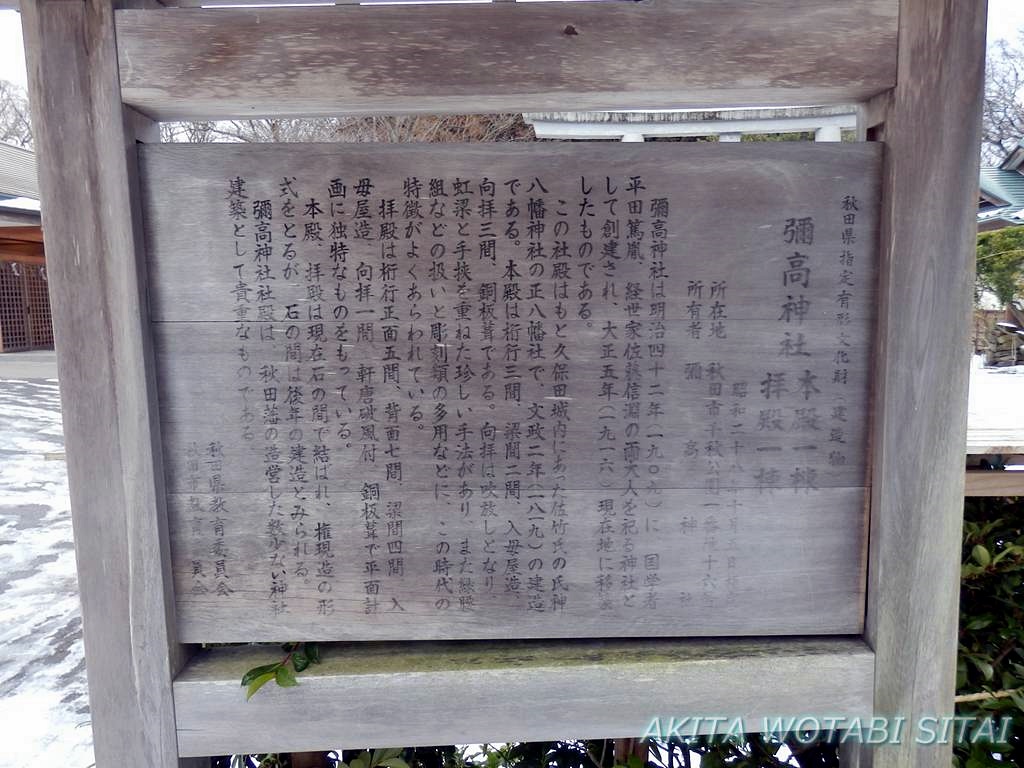 秋田県指定有形文化財（建造物）
彌高神社 本殿一棟
拝殿一棟
昭和二十八 十 五日
所在地 秋田市千秋公園一番 十六
所有者 彌高神社
彌高神社は明治四十二年（一九〇九）に、国学者
平田篤胤、経世家佐藤信淵の両大人を祀る神社と
して創建され、大正五年（一九一六）現在地に移
したものである。
この社殿はもと久保田城内にあった佐竹氏の氏神
八幡神社の正八幡社で、文政二年（一八一九）の建造
である。本殿は桁行三間、梁間二間、入母屋造、
向拝三間、銅板葺である。向拝は吹放しとなり、
虹梁と手挟を重ねた珍しい手法があり、また縁腰
組などの扱いと彫刻類の多用などに、この時代の
特徴がよくあらわれている。
拝殿は桁行正面五間、背面七間、梁間四間、入
母屋造、向拝一間、軒唐破風付、銅板葺で平面計
画に独特なものをもっている。
本殿、拝殿は現在石の間で結ばれ、権現造の形
式をとるが、石の間は後年の建造とみられる。
彌高神社社殿は、秋田藩の造営した数少ない神社
建築として貴重なものである。
秋田県教育委員会
秋田市教育 員会
AKITA WOTABI SITAI